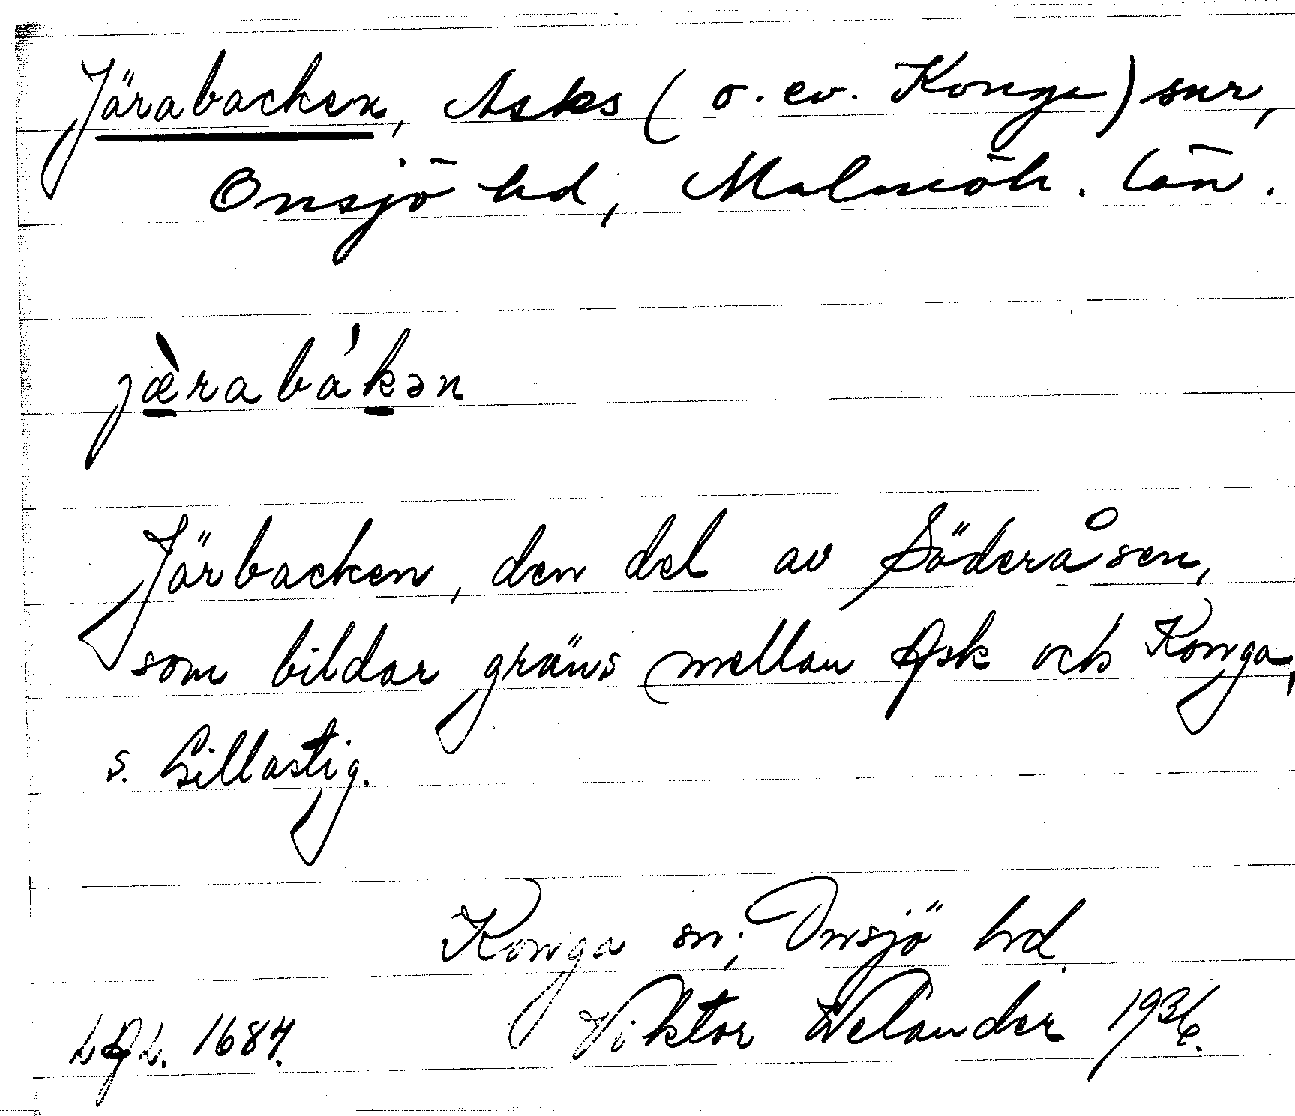 Järabacken, Asks (o. ev. Konga) snr,
Onsjö hd, Malmöh. län.
jæ̀rabákən
Järbacken, den del av Söderåsen,
som bildar gräns mellan Ask och Konga,
s. Lillastig.
Konga sn; Onsjö hd.
LAL. 1684. Viktor Welander 1936.